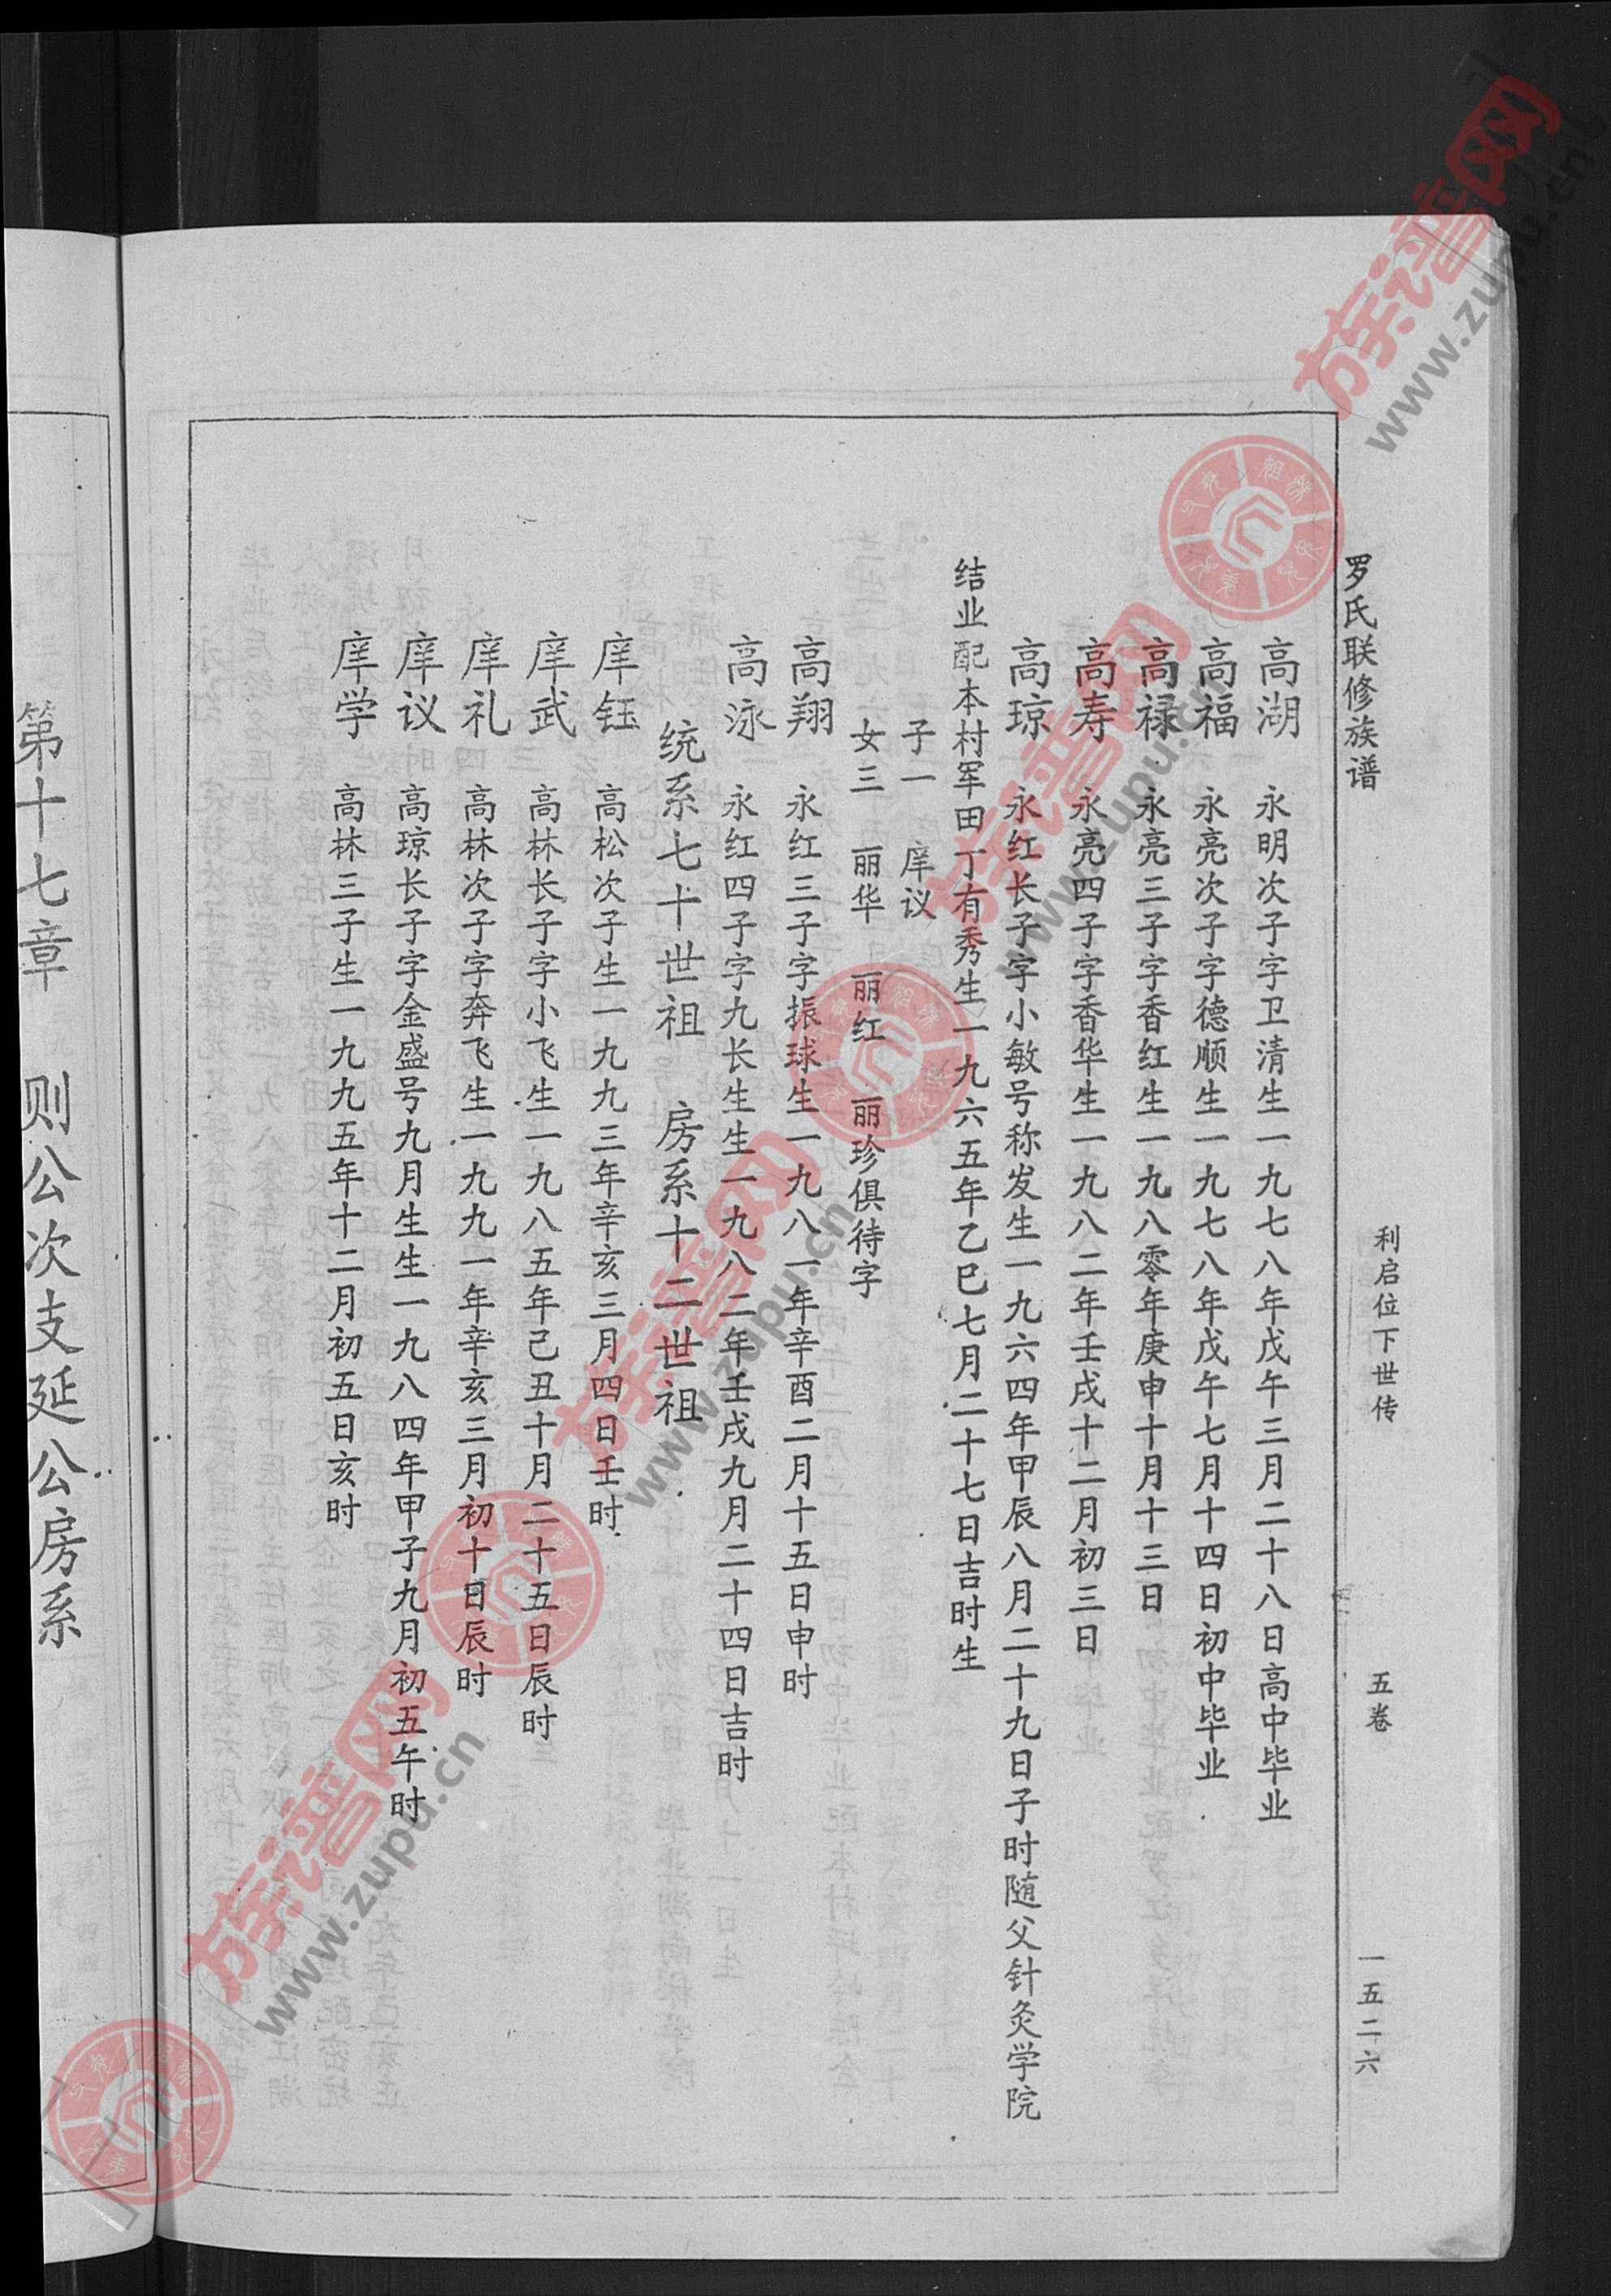 罗氏联修族谱 利启位下世传 五卷 一五二六
高湖 永明次子字卫清生一九七八年戊午三月二十八日高中毕业
高福 永亮次子字德顺生一九七八年戊午七月十四日初中毕业
高禄 永亮三子字香红生一九八零年庚申十月十三日
高寿 永亮四子字香华生一九八二年壬戌十二月初三日
高琼 永红长子字小敏号称发生一九六四年甲辰八月二十九日子时随父针灸学院
结业配本村军田丁有秀生一九六五年乙巳七月二十七日吉时生
子一 庠议
女三 丽华 丽红 丽珍俱待字
高翔 永红三子字振球生一九八一年辛酉二月十五日申时
高泳 永红四子字九长生生一九八二年壬戌九月二十四日吉时
统系七十世祖 房系十二世祖
庠钰 高松次子生一九九三年辛亥三月四日壬时
庠武 高林长子字小飞生一九八五年己丑十月二十五日辰时
庠礼 高林次子字奔飞生一九九一年辛亥三月初十日辰时
庠议 高琼长子字金盛号九月生生一九八四年甲子九月初五午时
庠学 高林三子生一九九五年十二月初五日亥时
第十七章 则公次支延公房系
族谱网
www.zupu.cn
族谱网
www.zupu.cn
族谱网
www.zupu.cn
族谱网
www.zupu.cn